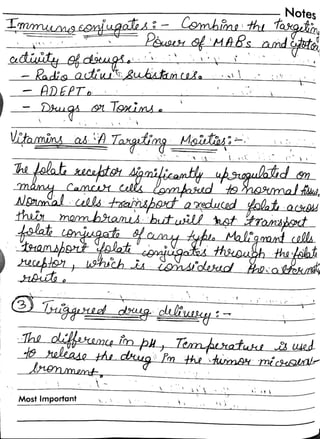 Notes
Immunoconjugates :- Combine the targeting
Power of MABs and cytotoxic
activity of drugs.
- Radio active substances.
- ADEPT.
- Drugs or Toxins.
Vitamins as A Targeting Moieties :-
The folate receptor significantly upregulated on
many cancer cells compared to normal tissues.
Normal cells transport a reduced folate across
their membranes but will not transport
folate conjugate of any type. Malignant cells
transport folate conjugates through the folate
receptor, which is considered the alternate
route.
③ Triggered drug delivery :-
The difference in pH, Temperature is used
to release the drug in the tumor microenvi-
bronment.
Most Important